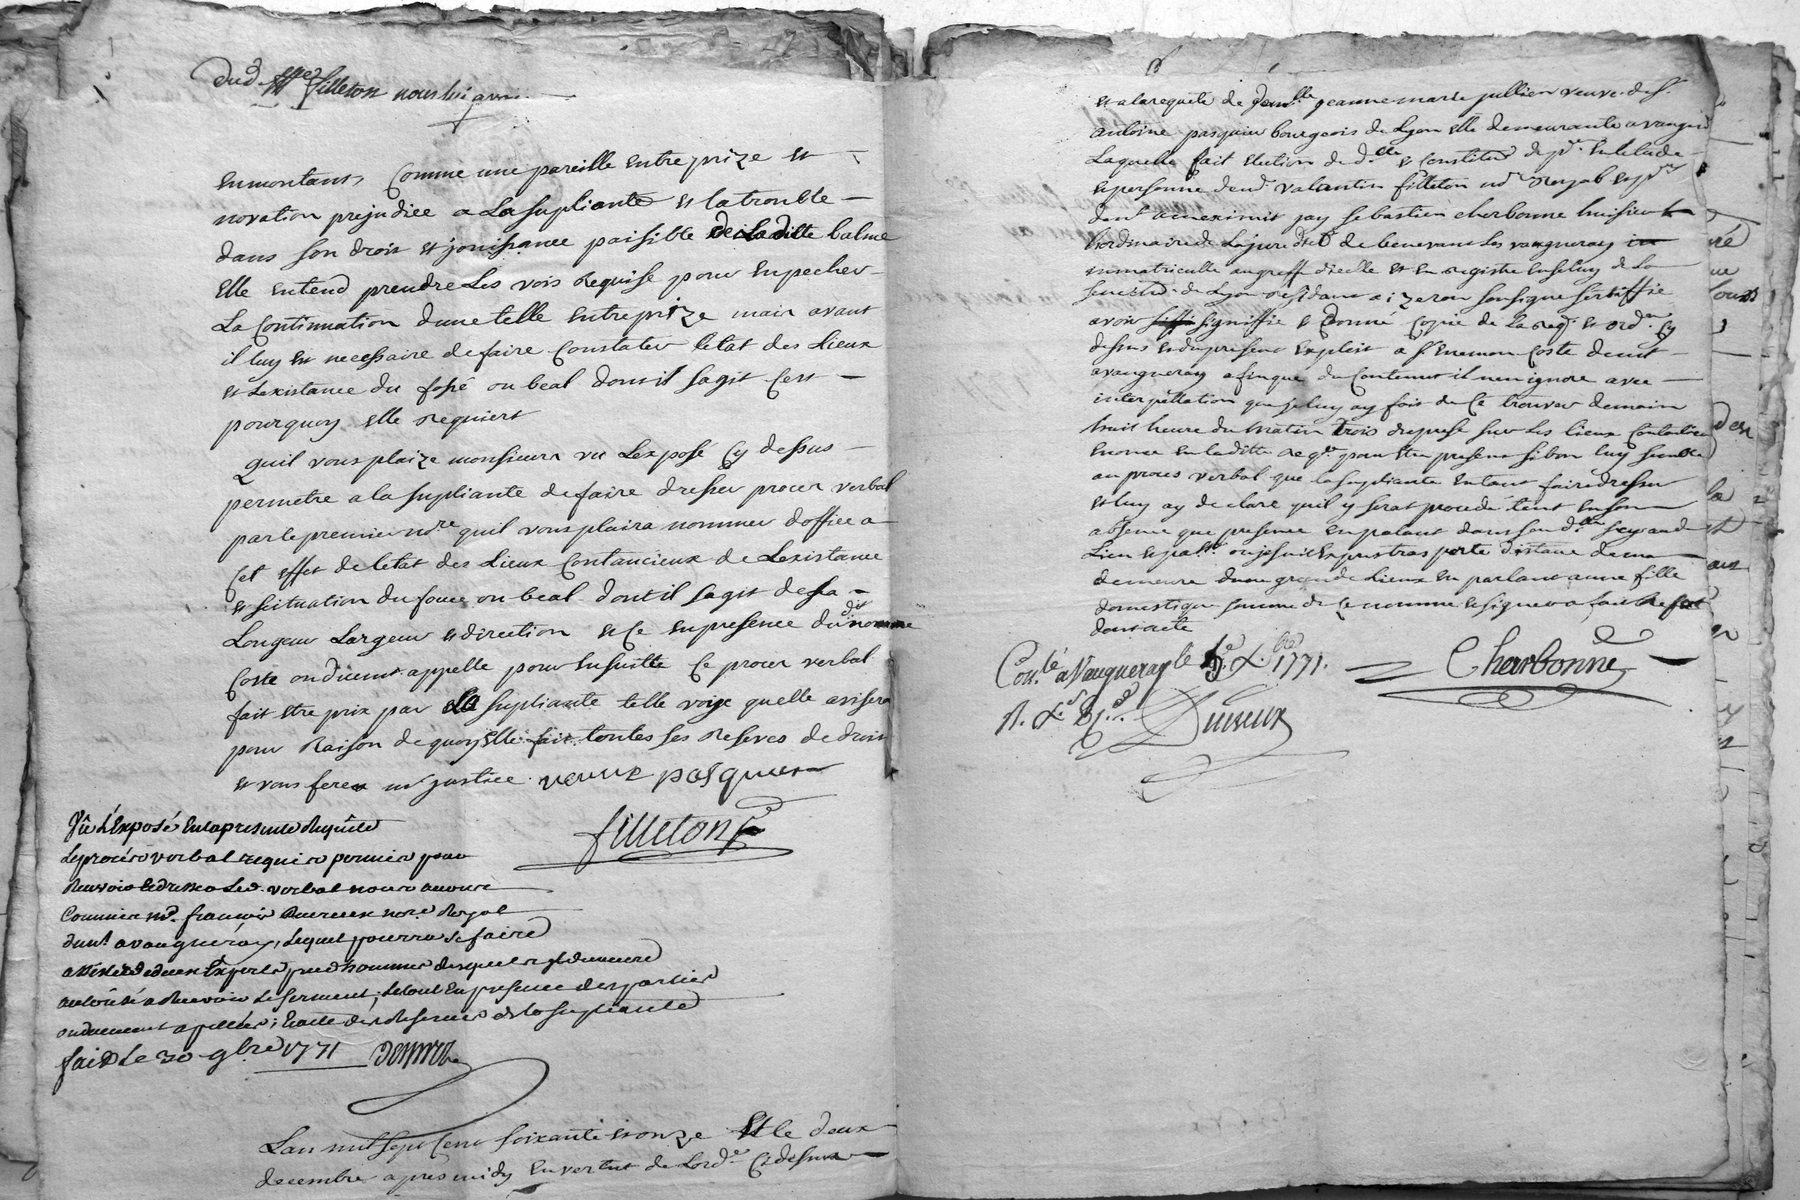 dud. Me filleton nous lui avons
en montant, Comme une pareille entreprize et
novation prejudicie a La supliante et la trouble
dans son droit et jouissance paisible de la ditte balme
elle entend prendre Les vois requise pour empecher
La Continuation d'une telle entreprize mais avant
il luy est necessaire de faire Constater l'etat des Lieux
et L'existance du fossé ou beal dont il sagit C'est
pourquoy elle requiert
quil vous plaize monsieur vu L'exposé Cy dessus
permetre a la supliante de faire dresser proces verbal
par le premier nore quil vous plaira nommer d'office a
Cet effet de l'etat des Lieux Contancieux de L'existance
et situation du fosse ou beal dont il sagit de sa
Longeur Largeur et direction et ce en presence dudit nomme
Coste ou duement appelle pour ensuitte Ce proces verbal
fait etre prix par la supliante telle voix quelle avisera
pour Raison de quoy elle fait toutes ses reserves de droit
et vous ferez justice veuve pasquier
filleton
Vû L'Exposé En la presente Requête
Le procès verbal requis permis pour
Recevoir et dresser Led. verbal nous avons
Commis Me. françois Duvieux nore Royal
dudt a vaugneray, Lequel pourra se faire
assister de deux Experts prud'hommes desquels il demeure
autorisé a Recevoir Le serment, Le tout En presence des parties
ou duement apellées; sauf les Reserves de la supliante
fait Le 30 9bre 1771
L'an mil sept Cent soixante et onze Et le deux
decembre apres midy En vertut de L'orde Cy dessus
et a la requete de demlle jeanne marie jullien veuve de sr.
antoine pasquier bourgeois de Lyon elle demeurante a vaugneray
Laquelle fait election de dlle et Constitue de pr. en l'etude
et personne de md. valantin filleton nore Royal et pr
dont amexinuit jay sebastien cherbonne huissier
ordinaire de La jurediction de benevent Les vaugneray
immatriculle au greffe d'icelle et en registre en celuy de La
senechée de Lyon residant a izeron soussigne certiffie
avoir signiffie et donné Copie de La reqt. et orde. Cy
dessus et du present Exploit a sr. Enemon Coste demt
a vaugneray afin que du Contenut il n'en ignore avec
interpellation que je luy ay fait de se trouver demain
huit heure du matin trois du present sur Les lieux Contantieux
enonce en la ditte reqte pour etre present si bon luy semble
au proces verbal que la supliante entant faire dresser
et luy ay declaré quil y serat procedé tant en son
absence que presence en parlant dans son dlle
Lieu et parlt. ou je suis expres trasporté distant de ma
demeure d'une grande Lieux en parlant a une fille
domestique somme de ce nommer et signer a fait refut
dont acte
Cherbonne
Conlé a Vaugneray le 3e Xbre 1771.
Duvieux